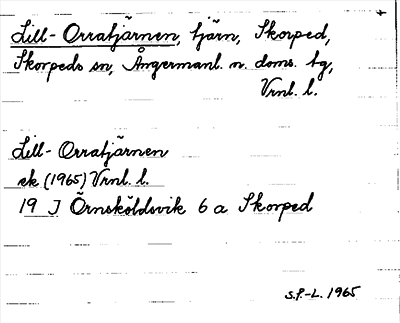 Lill-Orratjärnen, tjärn, Skorped,
Skorpeds sn, Ångermanl. n. doms. tg,
Vrnl. l.
Lill-Orratjärnen
ek (1965) Vrnl. l.
19 J Örnsköldsvik 6 a Skorped
S.P.-L. 1965